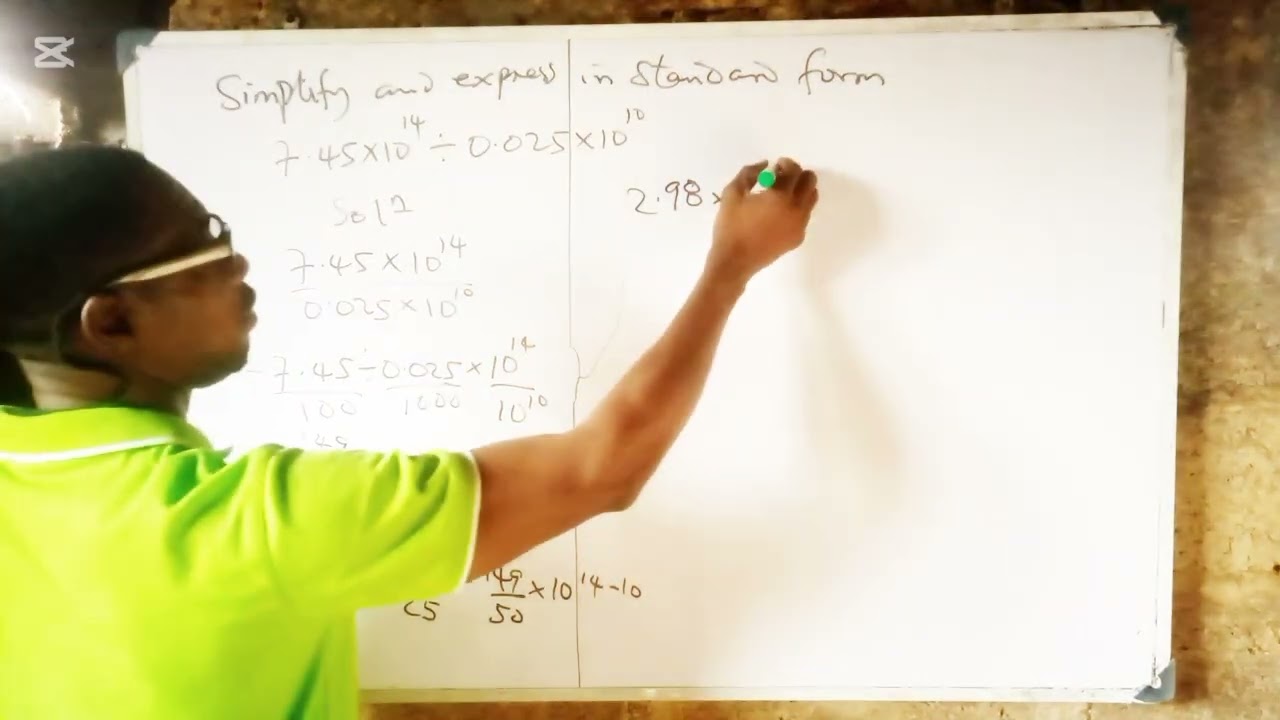 Simplify and express in standard form
7.45×10^14 ÷ 0.025×10^10
Sol2
7.45×10^14
0.025×10^10
7.45÷0.025×10^14
100 1000 10^10
2.98×
149 ×10^14-10
50